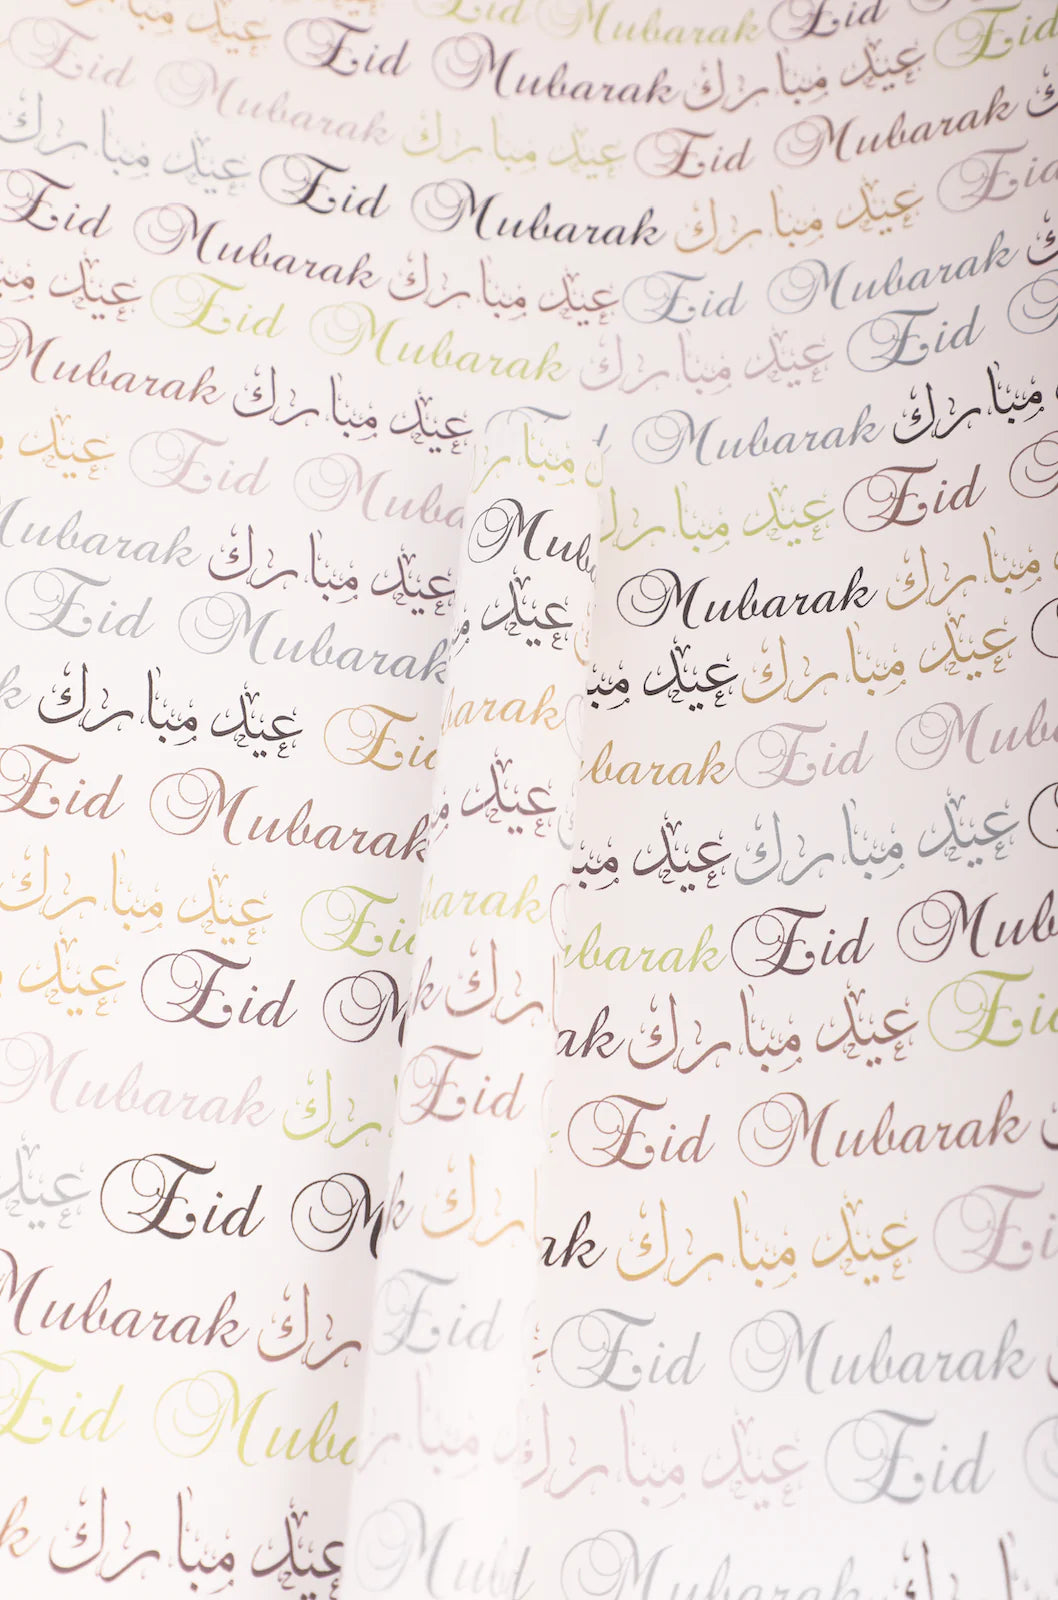 Eid Mubarak Eid
عيد Eid Mubarak عيد مبارك Eid
Eid Mubarak عيد مبارك Eid Mubarak
عيد مبارك Eid Mubarak عيد مبارك Eid
Eid Mubarak عيد مبارك Eid Mubarak
عيد Eid Mubarak عيد مبارك Eid
Mubarak عيد مبارك Mubarak مبارك
عيد Eid عيد مبارك Eid
Mubarak عيد مبارك Mubarak مبارك
Eid Mubarak عيد عيد عيد مبارك
عيد مبارك Eid Mubarak Eid
Eid Mubarak عيد عيد عيد مبارك
عيد مبارك Eid Mubarak Eid
عيد Eid عيد مبارك Eid
Mubarak Eid Eid Mubarak
عيد Eid عيد مبارك
Mubarak Eid Eid Mubarak
Eid عيد مبارك Eid
عيد مبارك Mubarak